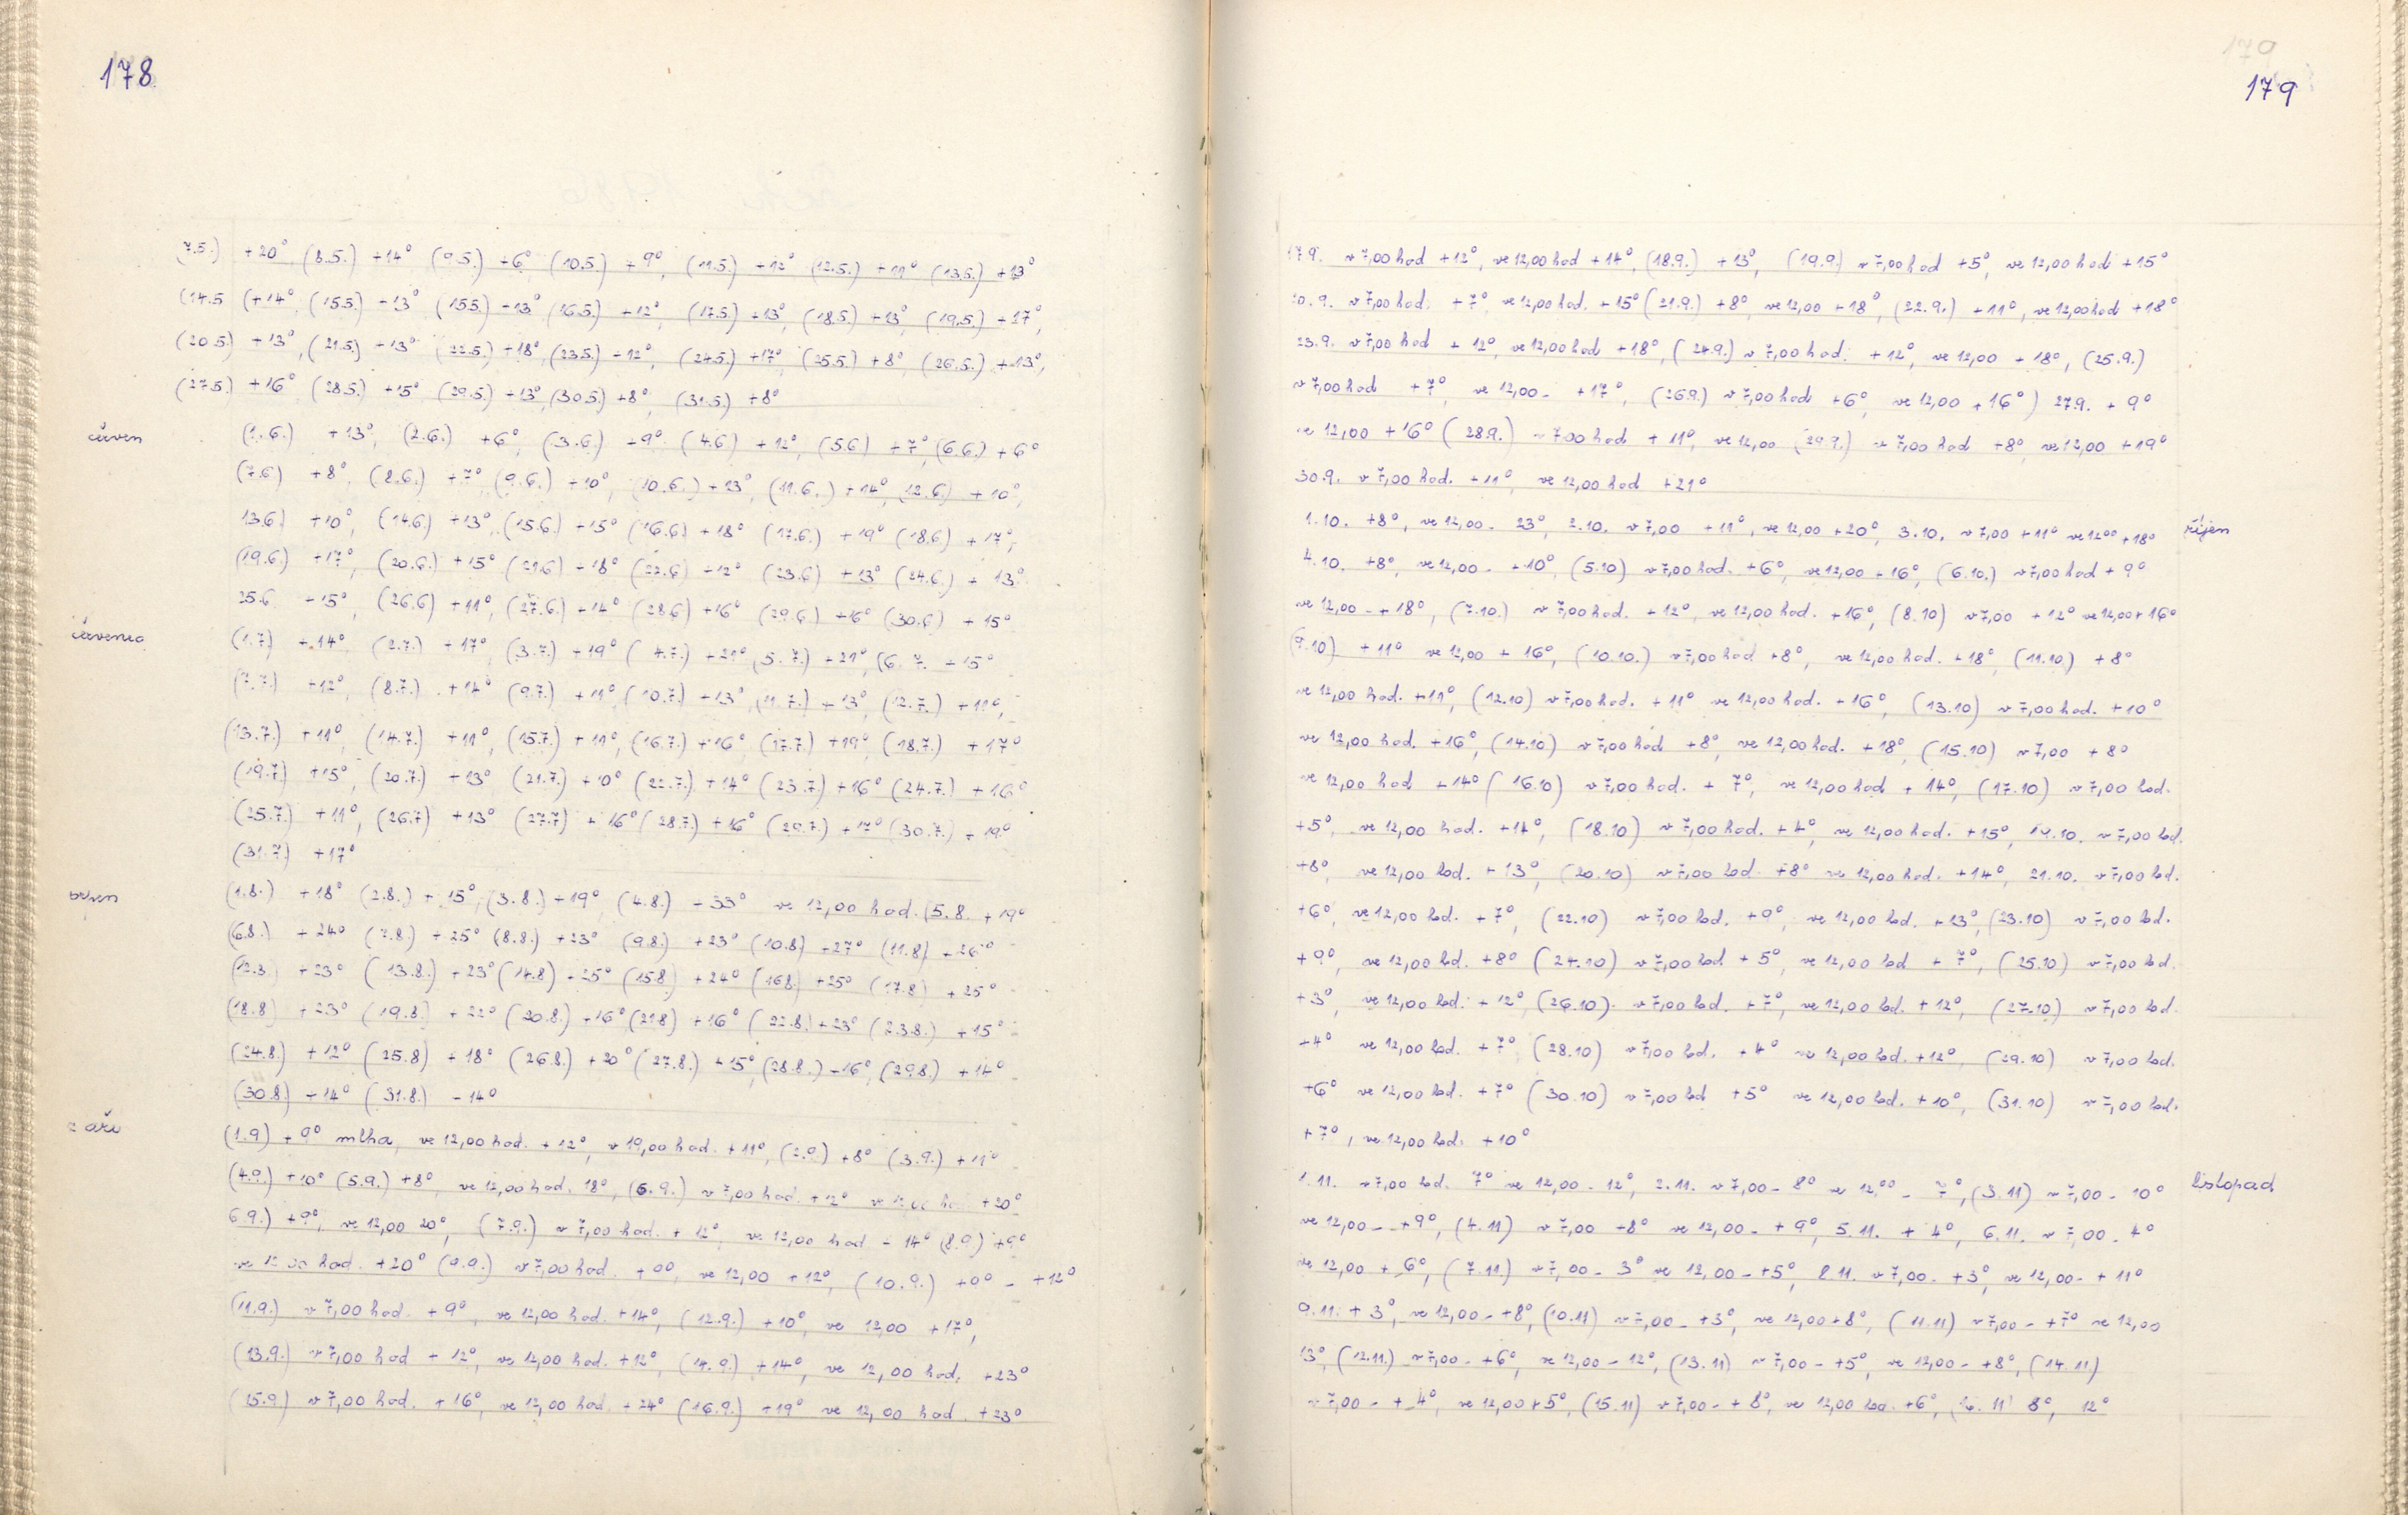 178
7.5.) +20° (8.5.) +14° (9.5.) +6° (10.5.) +9°, (11.5.) +12° (12.5.) +11° (13.5.) +13°
(14.5 (+14°, (15.5.) +13° (15.5.) +13° (16.5.) +12°, (17.5.) +13°, (18.5.) +13°, (19.5.) +17°,
(20.5.) +13°, (21.5.) +13° (22.5.) +18°, (23.5.) +12°, (24.5.) +17°, (25.5.) +8°, (26.5.) +13°,
(27.5.) +16° (28.5.) +15° (29.5.) +13°, (30.5.) +8°, (31.5.) +8°
červen
(1.6.) +13°, (2.6.) +6°, (3.6.) +9° (4.6) +12°, (5.6) +7°, (6.6.) +6°
(7.6) +8°, (8.6.) +7°, (9.6.) +10°, (10.6.) +13°, (11.6.) +14°, (12.6) +10°,
13.6.) +10°, (14.6) +13°, (15.6) +15° (16.6) +18° (17.6.) +19° (18.6) +17°,
(19.6) +17°, (20.6.) +15° (21.6) +18° (22.6) +12° (23.6) +13° (24.6.) +13°
25.6 +15°, (26.6) +11°, (27.6) +14° (28.6) +16° (29.6) +16° (30.6) +15°
červenec
(1.7) +14° (2.7.) +17° (3.7.) +19° (4.7.) +21° (5.7.) +21°, (6.7. +15°
(7.7.) +12°, (8.7.) +14° (9.7.) +11°, (10.7.) +13°, (11.7.) +13°, (12.7.) +11°,
(13.7.) +11°, (14.7.) +11°, (15.7.) +11°, (16.7.) +16° (17.7.) +19°, (18.7.) +17°
(19.7.) +15°, (20.7.) +13° (21.7.) +10° (22.7.) +14° (23.7) +16° (24.7.) +16°
(25.7.) +11°, (26.7) +13° (27.7) +16° (28.7.) +16° (29.7.) +17° (30.7.) +19°
(31.7.) +17°
srpen
(1.8.) +18° (2.8.) +15°, (3.8.) +19°, (4.8.) +33° ve 12,00 hod. (5.8. +19°
(6.8.) +24° (7.8.) +25° (8.8.) +23° (9.8.) +23° (10.8) +27° (11.8) +26°
(12.8 +23° (13.8.) +23° (14.8) +25° (15.8) +24° (16.8) +25° (17.8) +25°
(18.8) +23° (19.8.) +22° (20.8.) +16° (21.8) +16° (22.8.) +23° (23.8.) +15°
(24.8.) +12° (25.8) +18° (26.8.) +20° (27.8.) +15°, (28.8.) +16°, (29.8.) +14°
(30.8) +14° (31.8.) +14°
září
(1.9) +9° mlha, ve 12,00 hod. +12°, v 19,00 hod. +11°, (2.9.) +8° (3.9.) +11°
(4.9.) +10° (5.9.) +8°, ve 12,00 hod. 18°, (6.9.) v 7,00 hod. +12° ve 12,00 hod +20°
6.9.) +9°, ve 12,00 20°, (7.9.) v 7,00 hod. +12°, ve 12,00 hod +14° (8.9.) +9°
ve 12,00 hod. +20° (9.9.) v 7,00 hod. +9°, ve 12,00 +12°, (10.9.) +9° - +12°
(11.9.) v 7,00 hod. +9°, ve 12,00 hod. +14°, (12.9.) +10°, ve 12,00 +17°,
(13.9.) v 7,00 hod +12°, ve 12,00 hod. +12°, (14.9.) +14°, ve 12,00 hod. +23°
(15.9) v 7,00 hod. +16°, ve 12,00 hod. +24° (16.9.) +19° ve 12,00 hod. +23°
179
179
17.9. v 7,00 hod +12°, ve 12,00 hod +14°, (18.9.) +13°, (19.9.) v 7,00 hod +5°, ve 12,00 hod +15°
20.9. v 7,00 hod. +7°, ve 12,00 hod. +15° (21.9.) +8°, ve 12,00 +18°, (22.9.) +11°, ve 12,00 hod +18°
23.9. v 7,00 hod +12°, ve 12,00 hod +18°, (24.9.) v 7,00 hod. +12°, ve 12,00 +18°, (25.9.)
v 7,00 hod +7°, ve 12,00 - +17°, (26.9.) v 7,00 hod +6°, ve 12,00 +16°) 27.9. +9°
ve 12,00 +16° (28.9.) v 7,00 hod +11°, ve 12,00 (29.9.) v 7,00 hod +8°, ve 12,00 +19°
30.9. v 7,00 hod. +11°, ve 12,00 hod +21°
říjen
1.10. +8°, ve 12,00 - 23°, 2.10. v 7,00 +11°, ve 12,00 +20°, 3.10. v 7,00 +11° ve 12,00 +18°
4.10. +8°, ve 12,00 - +10°, (5.10) v 7,00 hod. +6°, ve 12,00 +16°, (6.10.) v 7,00 hod +9°
ve 12,00 - +18°, (7.10.) v 7,00 hod. +12°, ve 12,00 hod. +16°, (8.10) v 7,00 +12° ve 12,00 +16°
(9.10) +11° ve 12,00 +16°, (10.10.) v 7,00 hod +8°, ve 12,00 hod. +18°, (11.10.) +8°
ve 12,00 hod. +11°, (12.10) v 7,00 hod. +11° ve 12,00 hod. +16°, (13.10) v 7,00 hod. +10°
ve 12,00 hod. +16°, (14.10) v 7,00 hod +8°, ve 12,00 hod. +18°, (15.10) v 7,00 +8°
ve 12,00 hod +14° (16.10) v 7,00 hod. +7°, ve 12,00 hod +14°, (17.10) v 7,00 hod.
+5°, ve 12,00 hod. +14°, (18.10) v 7,00 hod. +4°, ve 12,00 hod. +15°, 19.10. v 7,00 hod.
+8°, ve 12,00 hod. +13°, (20.10) v 7,00 hod. +8° ve 12,00 hod. +14°, 21.10. v 7,00 hod.
+6°, ve 12,00 hod. +7°, (22.10) v 7,00 hod. +9°, ve 12,00 hod. +13°, (23.10) v 7,00 hod.
+9°, ve 12,00 hod. +8° (24.10) v 7,00 hod +5°, ve 12,00 hod +7°, (25.10) v 7,00 hod.
+3°, ve 12,00 hod. +12°, (26.10). v 7,00 hod. +7°, ve 12,00 hod. +12°, (27.10) v 7,00 hod.
+4° ve 12,00 hod. +7° (28.10) v 7,00 hod. +4° ve 12,00 hod. +12°, (29.10) v 7,00 hod.
+6° ve 12,00 hod. +7° (30.10) v 7,00 hod +5° ve 12,00 hod. +10°, (31.10) v 7,00 hod.
+7°, ve 12,00 hod. +10°
listopad
1.11. v 7,00 hod. 7° ve 12,00 - 12°, 2.11. v 7,00 - 8° ve 12,00 - 7°, (3.11) v 7,00 - 10°
ve 12,00 - +9°, (4.11) v 7,00 +8° ve 12,00 - +9°, 5.11. +4°, 6.11. v 7,00 - 4°
ve 12,00 +6°, (7.11) v 7,00 - 3° ve 12,00 - +5°, 8.11. v 7,00 - +3°, ve 12,00 - +11°
9.11. +3°, ve 12,00 - +8°, (10.11) v 7,00 - +3°, ve 12,00 +8°, (11.11) v 7,00 - +7° ve 12,00
13°, (12.11.) v 7,00 - +6°, ve 12,00 - 12°, (13.11) v 7,00 - +5°, ve 12,00 - +8°, (14.11)
v 7,00 - +4°, ve 12,00 +5°, (15.11) v 7,00 - +8°, ve 12,00 hod. +6°, 16.11 8°, 12°